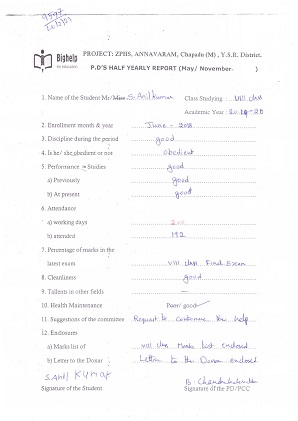 Bighelp
for education
PROJECT: ZPHS, ANNAVARAM, Chapadu (M) , Y.S.R. District.
P.D'S HALF YEARLY REPORT (May/ November )
1. Name of the Student Mr/Miss. S. Anil kumar Class Studying : VIII class
Academic Year : 2019-20
2. Enrollment month & year June - 2018
3. Discipline during the period good
4. Is he/ she obedient or not obedient
5. Performance in Studies good
a) Previously good
b) At present good
6. Attendance
a) working days
b) attended 192
7. Percentage of marks in the
latest exam VIII class Final Exam
8. Cleanliness good
9. Tallents in other fields —
10. Health Maintenance Poor/ good
11. Suggestions of the committee Request to continue You help
12. Enclosures
a) Marks list of VIII class Marks list enclosed
b) Letter to the Donar Letter to the Donar enclosed
S. Anil Kumar
Signature of the Student Signature of the PD/PCC